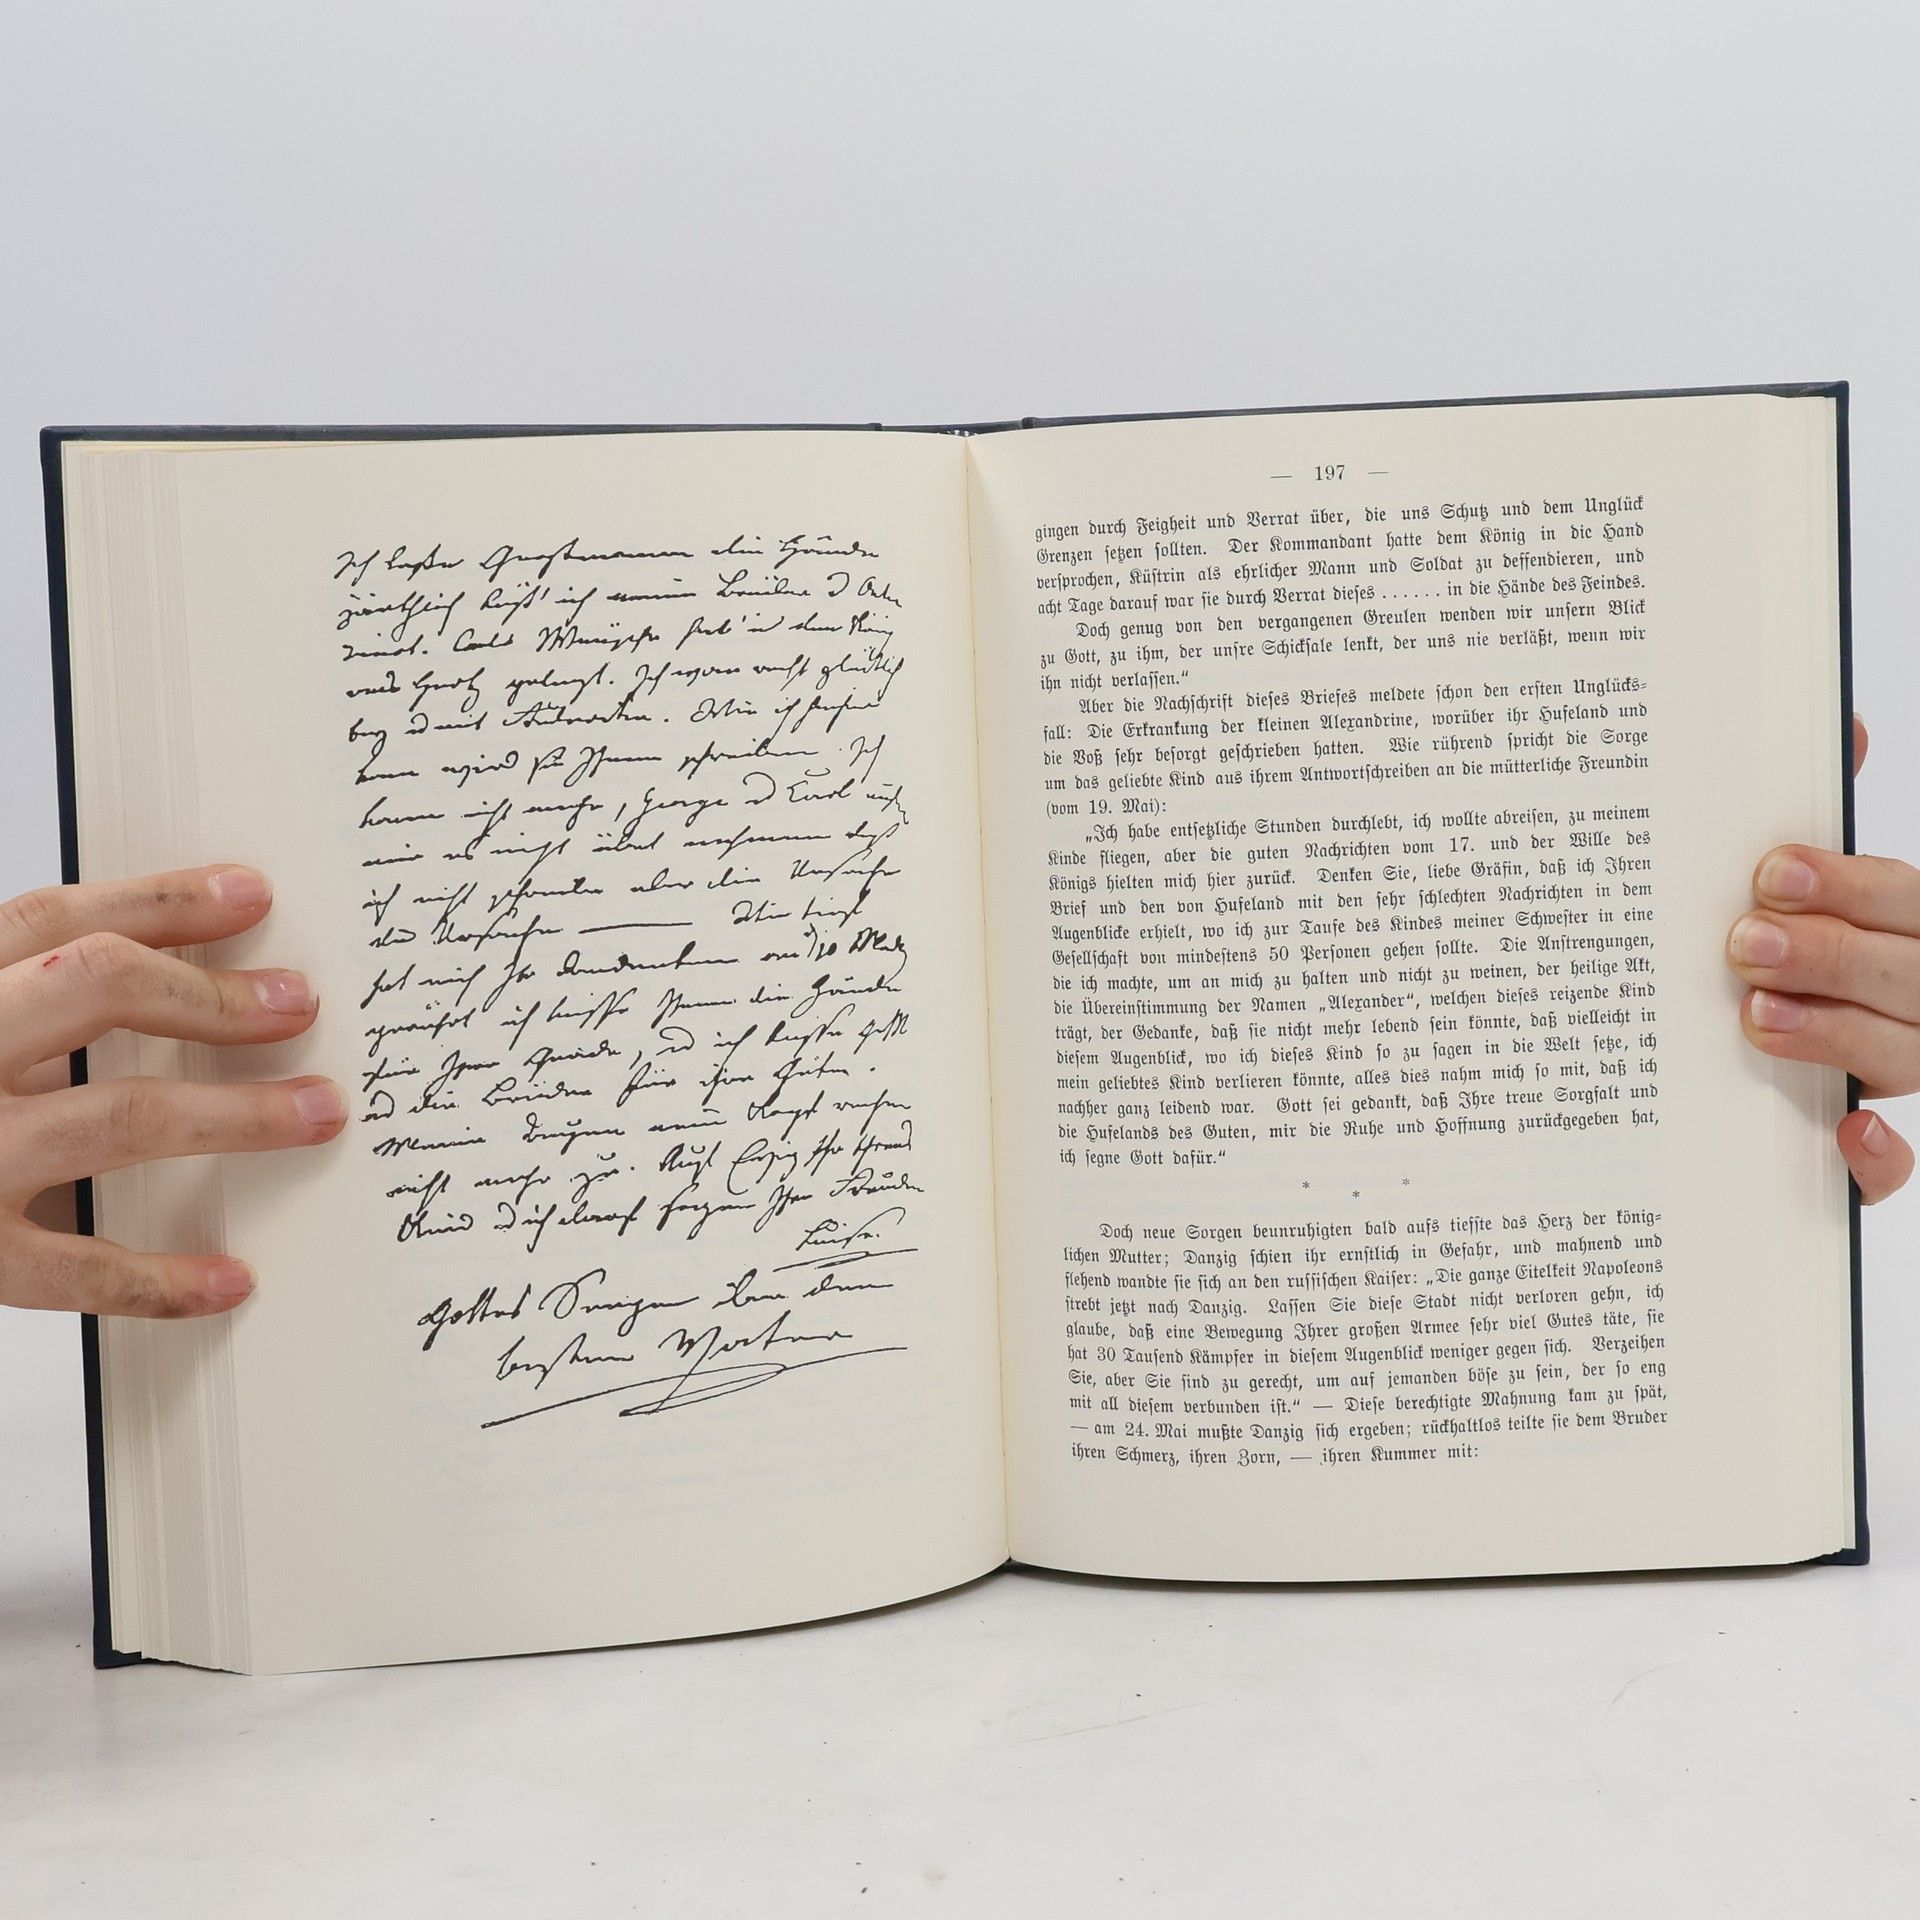 Ich
Hände
zärtlich küß' ich meine Brüder
dem König
Ich war recht glücklich
ich
wird sie Ihnen schreiben. Ich
kann nicht mehr, George Carl
mir es nicht übel nehmen daß
ich nicht aber die Ursache
die Ursache — Wie tief
hat mich Ihr 10 Merz
gerührt ich küsse Ihnen die Hände
für Ihre Gnade, ich küsse
die Brüder für ihre Güte.
Meine
nicht mehr zu. Ihr
Kind ich darf Ihre Freude
Luise.
Gottes Seegen über den
besten Vater
— 197 —
gingen durch Feigheit und Verrat über, die uns Schutz und dem Unglück
Grenzen setzen sollten. Der Kommandant hatte dem König in die Hand
versprochen, Küstrin als ehrlicher Mann und Soldat zu deffendieren, und
acht Tage darauf war sie durch Verrat dieses ...... in die Hände des Feindes.
Doch genug von den vergangenen Greulen wenden wir unsern Blick
zu Gott, zu ihm, der unsre Schicksale lenkt, der uns nie verläßt, wenn wir
ihn nicht verlassen.“
Aber die Nachschrift dieses Briefes meldete schon den ersten Unglücks-
fall: Die Erkrankung der kleinen Alexandrine, worüber ihr Hufeland und
die Voß sehr besorgt geschrieben hatten. Wie rührend spricht die Sorge
um das geliebte Kind aus ihrem Antwortschreiben an die mütterliche Freundin
(vom 19. Mai):
„Ich habe entsetzliche Stunden durchlebt, ich wollte abreisen, zu meinem
Kinde fliegen, aber die guten Nachrichten vom 17. und der Wille des
Königs hielten mich hier zurück. Denken Sie, liebe Gräfin, daß ich Ihren
Brief und den von Hufeland mit den sehr schlechten Nachrichten in dem
Augenblicke erhielt, wo ich zur Taufe des Kindes meiner Schwester in eine
Gesellschaft von mindestens 50 Personen gehen sollte. Die Anstrengungen,
die ich machte, um an mich zu halten und nicht zu weinen, der heilige Akt,
die Übereinstimmung der Namen „Alexander“, welchen dieses reizende Kind
trägt, der Gedanke, daß sie nicht mehr lebend sein könnte, daß vielleicht in
diesem Augenblick, wo ich dieses Kind so zu sagen in die Welt setze, ich
mein geliebtes Kind verlieren könnte, alles dies nahm mich so mit, daß ich
nachher ganz leidend war. Gott sei gedankt, daß Ihre treue Sorgfalt und
die Hufelands des Guten, mir die Ruhe und Hoffnung zurückgegeben hat,
ich segne Gott dafür.“
* * *
Doch neue Sorgen beunruhigten bald aufs tiefste das Herz der könig-
lichen Mutter; Danzig schien ihr ernstlich in Gefahr, und mahnend und
flehend wandte sie sich an den russischen Kaiser: „Die ganze Eitelkeit Napoleons
strebt jetzt nach Danzig. Lassen Sie diese Stadt nicht verloren gehn, ich
glaube, daß eine Bewegung Ihrer großen Armee sehr viel Gutes täte, sie
hat 30 Tausend Kämpfer in diesem Augenblick weniger gegen sich. Verzeihen
Sie, aber Sie sind zu gerecht, um auf jemanden böse zu sein, der so eng
mit all diesem verbunden ist.“ — Diese berechtigte Mahnung kam zu spät,
— am 24. Mai mußte Danzig sich ergeben; rückhaltlos teilte sie dem Bruder
ihren Schmerz, ihren Zorn, — ihren Kummer mit: